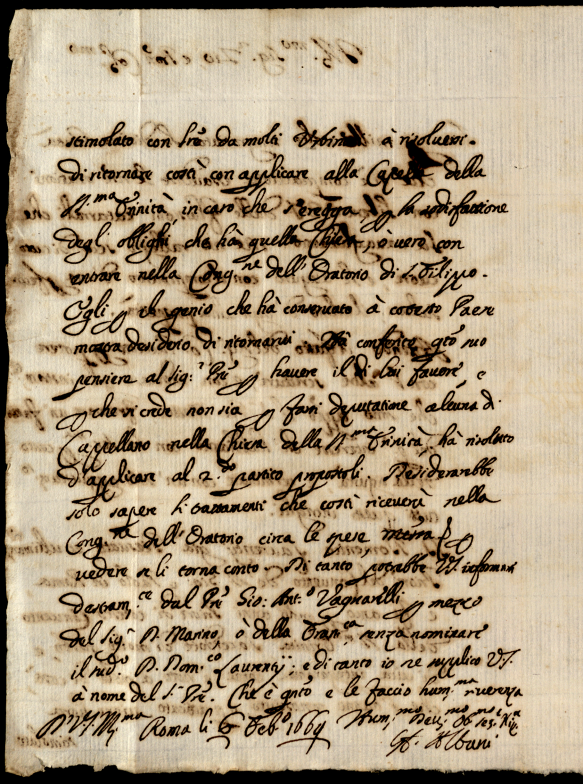 stimolato con lre da molti Urbinati à risolversi
di ritornare costì con applicare alla Capella della
S.ma Trinità in caso che s'eregga p la sodisfattione
degli oblighi che hà quella Chiesa, ò vero con
entrare nella Cong.ne dell'Oratorio di S. Filippo.
Egli p il genio che hà conservato à cotesto Paese
mostra desiderio di ritornarvi. Hà conferito qto suo
pensiere al Sig.r Pre p havere il di lui favore, e
p che si crede non sia p farsi deputatione alcuna di
Cappellano nella Chiesa della S.ma Trinità, hà risoluto
d'applicare al 2.do partito propostoli. Desiderarebbe
solo sapere li trattamenti che costì riceverà nella
Cong.ne dell'Oratorio circa le spese p
vedere se li torna conto. Di tanto potrebbe VS. informarsi
destram.te dal Pre Gio: Ant.o Vagnarelli p mezzo
del Sig.r D. Marino, ò della Fran.ca, senza nominare
il sud.o D. Dom.co Laurentij; e di tanto io ne supplico VS.
à nome del S.r Pre. Che è qnto e le faccio hum.ma riverenza
D VS. Ill.ma Roma li 6 Feb.o 1669 Hum.mo Dev.mo
Albani